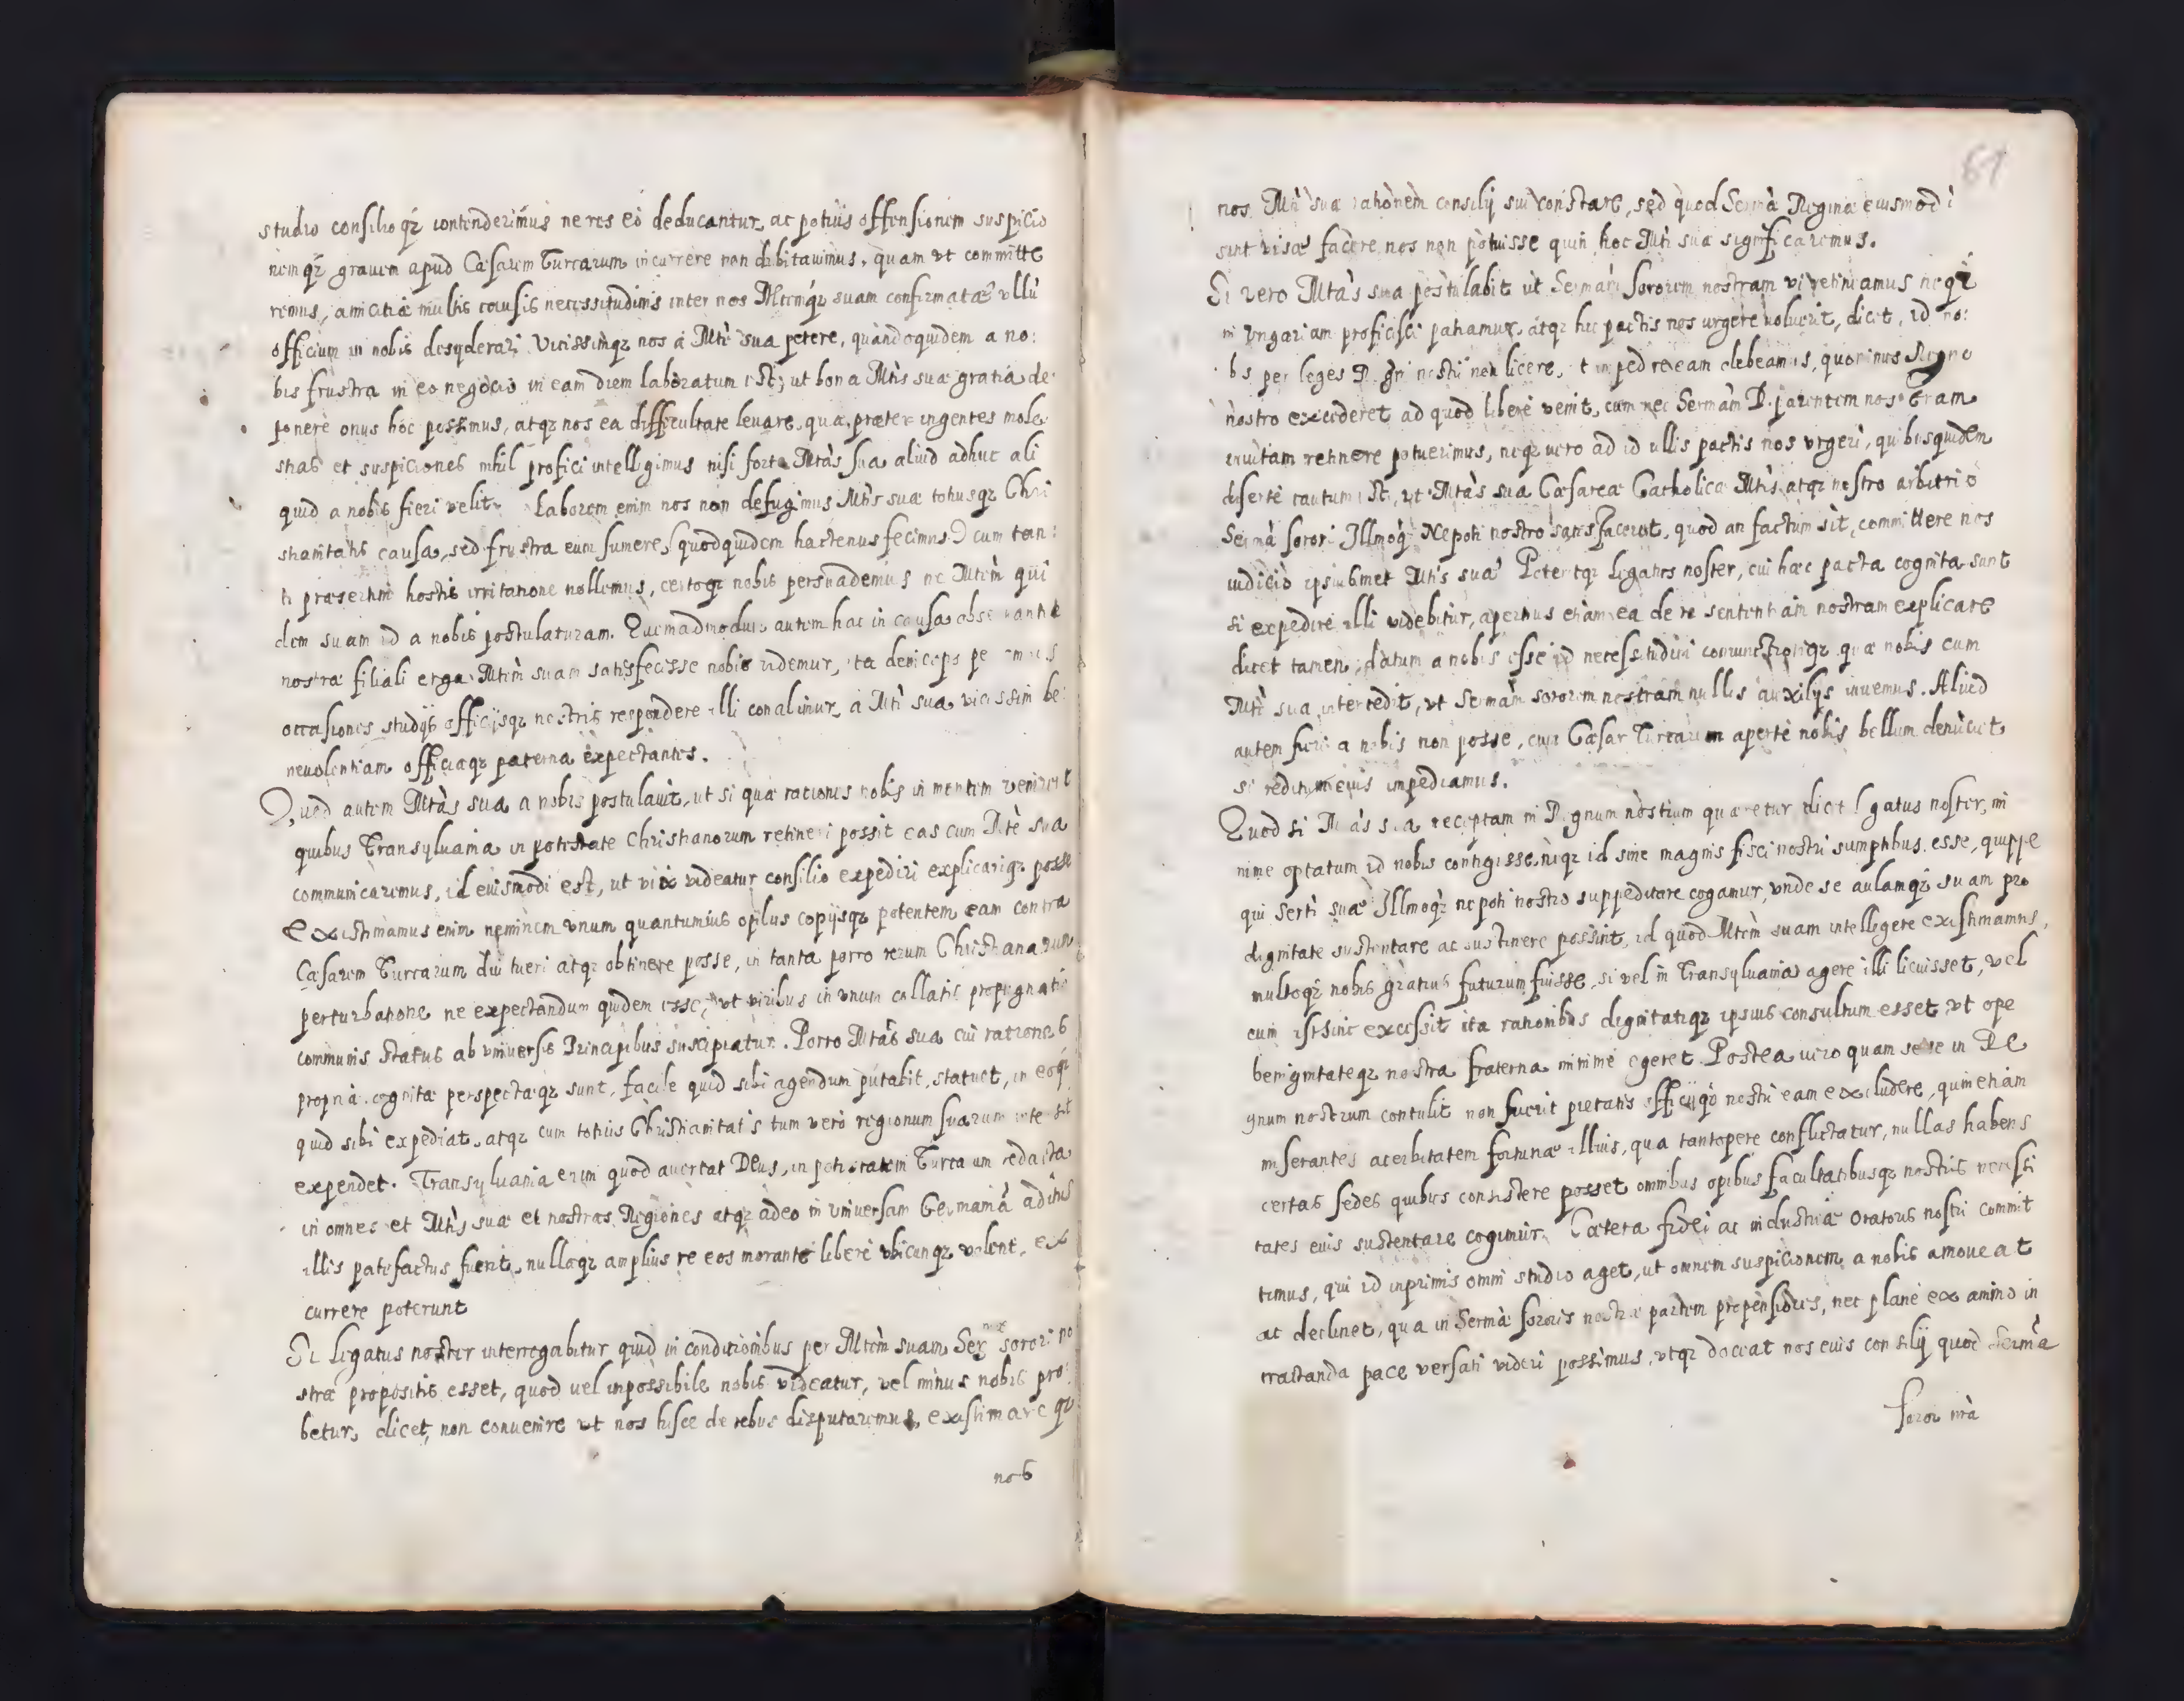 studio consilioq́z contenderimus ne res eò deducantur, ac potiùs offensionem suspicio
nemq́z grauem apud Cæsarem Turcarum incurrere non dubitauimus, quam vt committe
remus, amicitiæ multis causis necessitudinis inter nos Mtemq́z suam confirmatæ vllũ
officium in nobis desyderari. Vicissimqz nos à Mtè sua petere, quandoquidem a no:
bis frustra in eo negocio in eam diem laboratum est, ut bona Mtis suæ gratia de:
ponere onus hoc possimus, atqz nos ea difficultate leuare, qua præter ingentes mole
stias et suspiciones nihil profici intelligimus nisi forte Mtàs sua aliud adhuc ali
quid a nobis fieri velit. Laborem enim nos non defugimus Mtis suæ totiusqz Chri
stianitatis causa, sed frustra eum sumere (quod quidem hactenus fecimus) cum tan:
ti præsertim hostis irritatione nollemus, certoqz nobis persuademus ne Mtem qui
dem suam id a nobis postulaturam. Quemadmodum autem hac in causa obseruantiæ
nostræ filiali erga Mtem suam satisfecisse nobis videmur, ita deinceps per omnes
occasiones studijs officijsqz nostris respondere illi conabimur, à Mtè sua vicissim be:
neuolentiam officiaqz paterna expectantes.
Quod autem Mtàs sua a nobis postulauit, ut si quæ rationes nobis in mentem venirent
quibus Transyluania in potestate Christianorum retineri possit eas cum Mtè sua
communicaremus, id eiusmodi est, ut vix videatur consilio expediri explicariqz posse
Existimamus enim neminem vnum quantumuis opibus copijsqz potentem eam contra
Cæsarem Turcarum diu tueri atqz obtinere posse, in tanta porro rerum Christianarum
perturbatione ne expectandum quidem esse, vt viribus in vnum collatis propugnatio
communis status ab vniuersis Principibus suscipiatur. Porro Mtàs sua cui rationes
propriæ cognitæ perspectæqz sunt, facile quid sibi agendum putabit, statuet, in eoq́z
quid sibi expediat, atqz cum totius Christianitatis tum verò regionum suarum intersit
expendet. Transyluania enim quod auertat Deus, in potestatem Turcarum redacta
in omnes et Mtis suæ et nostras Regiones atqz adeo in vniuersam Germaniã aditus
illis patefactus fuerit, nullaqz amplius re eos morante liberè vbicunqz volent, ex
currere poterunt
Si Legatus noster interrogabitur quid in conditionibus per Mtem suam Ser[mæ] sorori no
stræ propositis esset, quod uel inpossibile nobis videatur, vel minus nobis pro:
betur, dicet, non conuenire vt nos hisce de rebus disputaremus, existimare qz
nos
61
nos Mti suæ rationem consilij sui constare, sed quod Sermà Regina eiusmodi
sint visa facere nos non potuisse quin hoc Mti suæ significaremus.
Si vero Mtàs sua postulabit ut Sermàm sororem nostram vi retineamus neq́z
in Vngariam proficisci patiamur, atqz hic pactis nos urgere voluerit, dicet, id no:
bis per leges Regni nostri non licere, ut impedire eam debeamus, quominus Regno
nostro excederet ad quod liberè venit, cum nec Sermàm D. parentem nostram
inuitam retinere potuerimus, neqz uero ad id ullis pactis nos vrgeri, quibus quidem
disertè cautum est, ut Mtàs sua Cæsarea Catholicæ Mtis atqz nostro arbitrio
Sermà sorori Illmoq́z Nepoti nostro satisfacerent, quod an factum sit, committere nos
iudicio ipsiusmet Mtis suæ. Poteritqz Legatus noster, cui hæc pacta cognita sunt
si expedire illi videbitur, apertius etiam ea de re sententiam nostram explicare
dicet tamen, datum a nobis esse id necessitudini coniunctioniqz quæ nobis cum
Mtè sua intercedit, vt Sermàm sororem nostram nullis auxilijs iuuemus. Aliud
autem fieri a nobis non posse, cum Cæsar Turcarum apertè nobis bellum denũciet
si reditum eius impediamus.
Quod si Mtàs sua receptam in Regnum nostrum quæretur dicet Legatus noster, mi
nime optatum id nobis contigisse, neqz id sine magnis fisci nostri sumptibus esse, quippe
qui Serti suæ Illmoq́z nepoti nostro suppeditare cogamur, vnde se aulamq́z suam pro
dignitate sustentare ac sustinere possint, id quod Mtèm suam intelligere existimamus,
multoq́z nobis gratius futurum fuisse, si vel in Transyluania agere illi licuisset, vel
cum istsinc excessit ita rationibus dignitatiqz ipsius consultum esset, vt ope
benignitateqz nostra fraterna minimè egeret. Postea uero quam sese in Re
gnum nostrum contulit non fuerit pietatis officijq́z nostri eam excludere, quin etiam
miserantes acerbitatem fortunæ illius, qua tantopere conflictatur, nullas habens
certas sedes quibus consistere posset omnibus opibus facultatibusqz nostris necessi
tates eius sustentare cogimur. Cætera fidei ac industriæ Oratoris nostri commit
timus, qui id inprimis omni studio aget, ut omnem suspicionem a nobis amoueat
ac declinet, qua in Sermæ sororis nostræ partem propensiores, nec planè ex animo in
tractanda pace versati videri possimus, vtqz doceat nos eius consilij quod Sermà
soror nrà